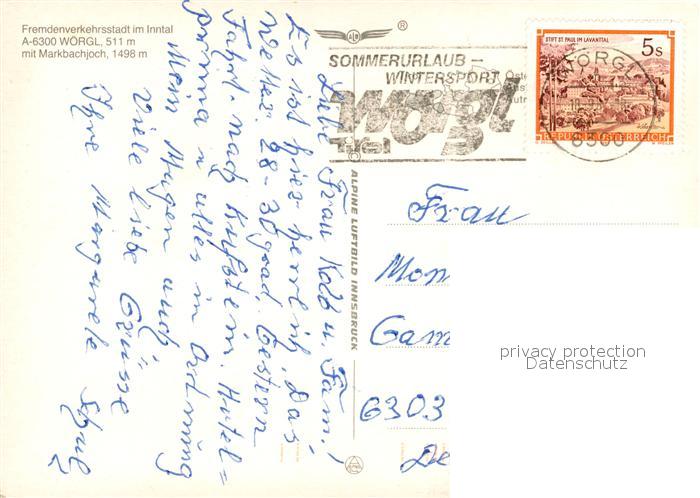 Fremdenverkehrsstadt im Inntal
A-6300 WÖRGL, 511 m
mit Markbachjoch, 1498 m
®
SOMMERURLAUB –
WINTERSPORT
wörgl
Tirol
STIFT ST. PAUL IM LAVANTTAL
5 S
REPUBLIK ÖSTERREICH
WÖRGL
6300
© ALPINE LUFTBILD INNSBRUCK
Liebe Frau Kolb u. Fam.!
Es ist hier herrlich, das
Wetter 28-30 grad. Gestern
Fahrt nach Kufstein. Hotel-
prima u alles in Ordnung
Mein Magen auch
Viele liebe Grüsse
Ihre Margarete
Frau
Mon
Gam
6303
De
privacy protection
Datenschutz